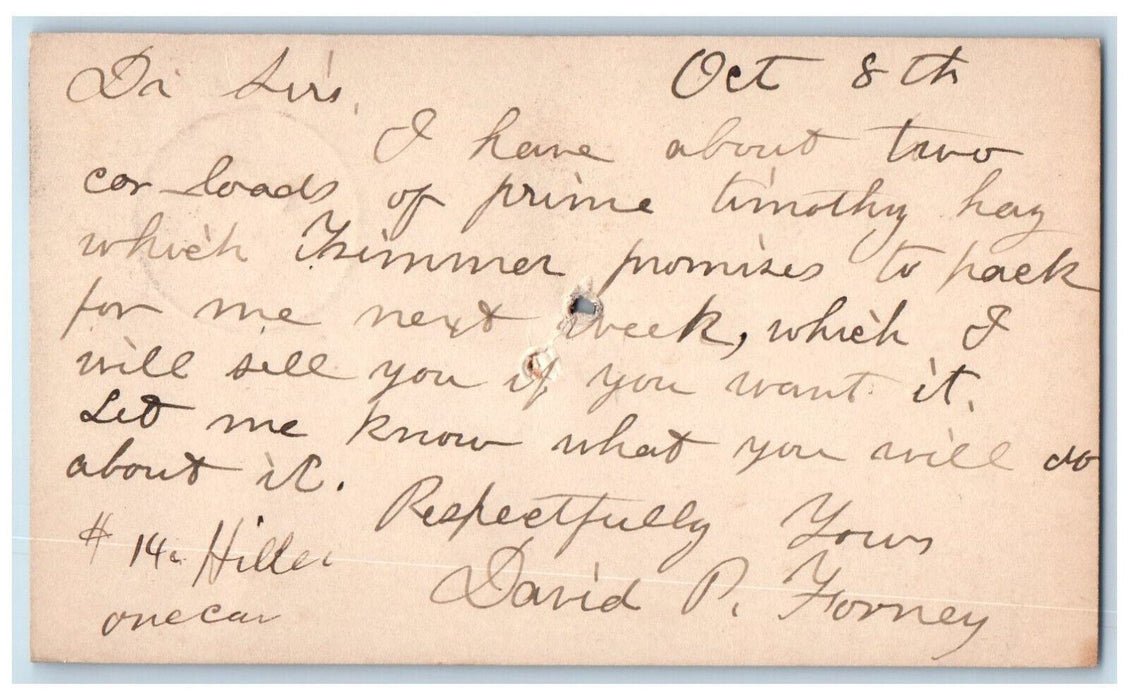 Oct 8th
Dr Sirs,
I have about two
car loads of prime timothy hay
which Trimmer promises to pack
for me next week, which I
will sell you if you want it.
Let me know what you will do
about it.
Respectfully Yours
David P. Forney
# 14
one car